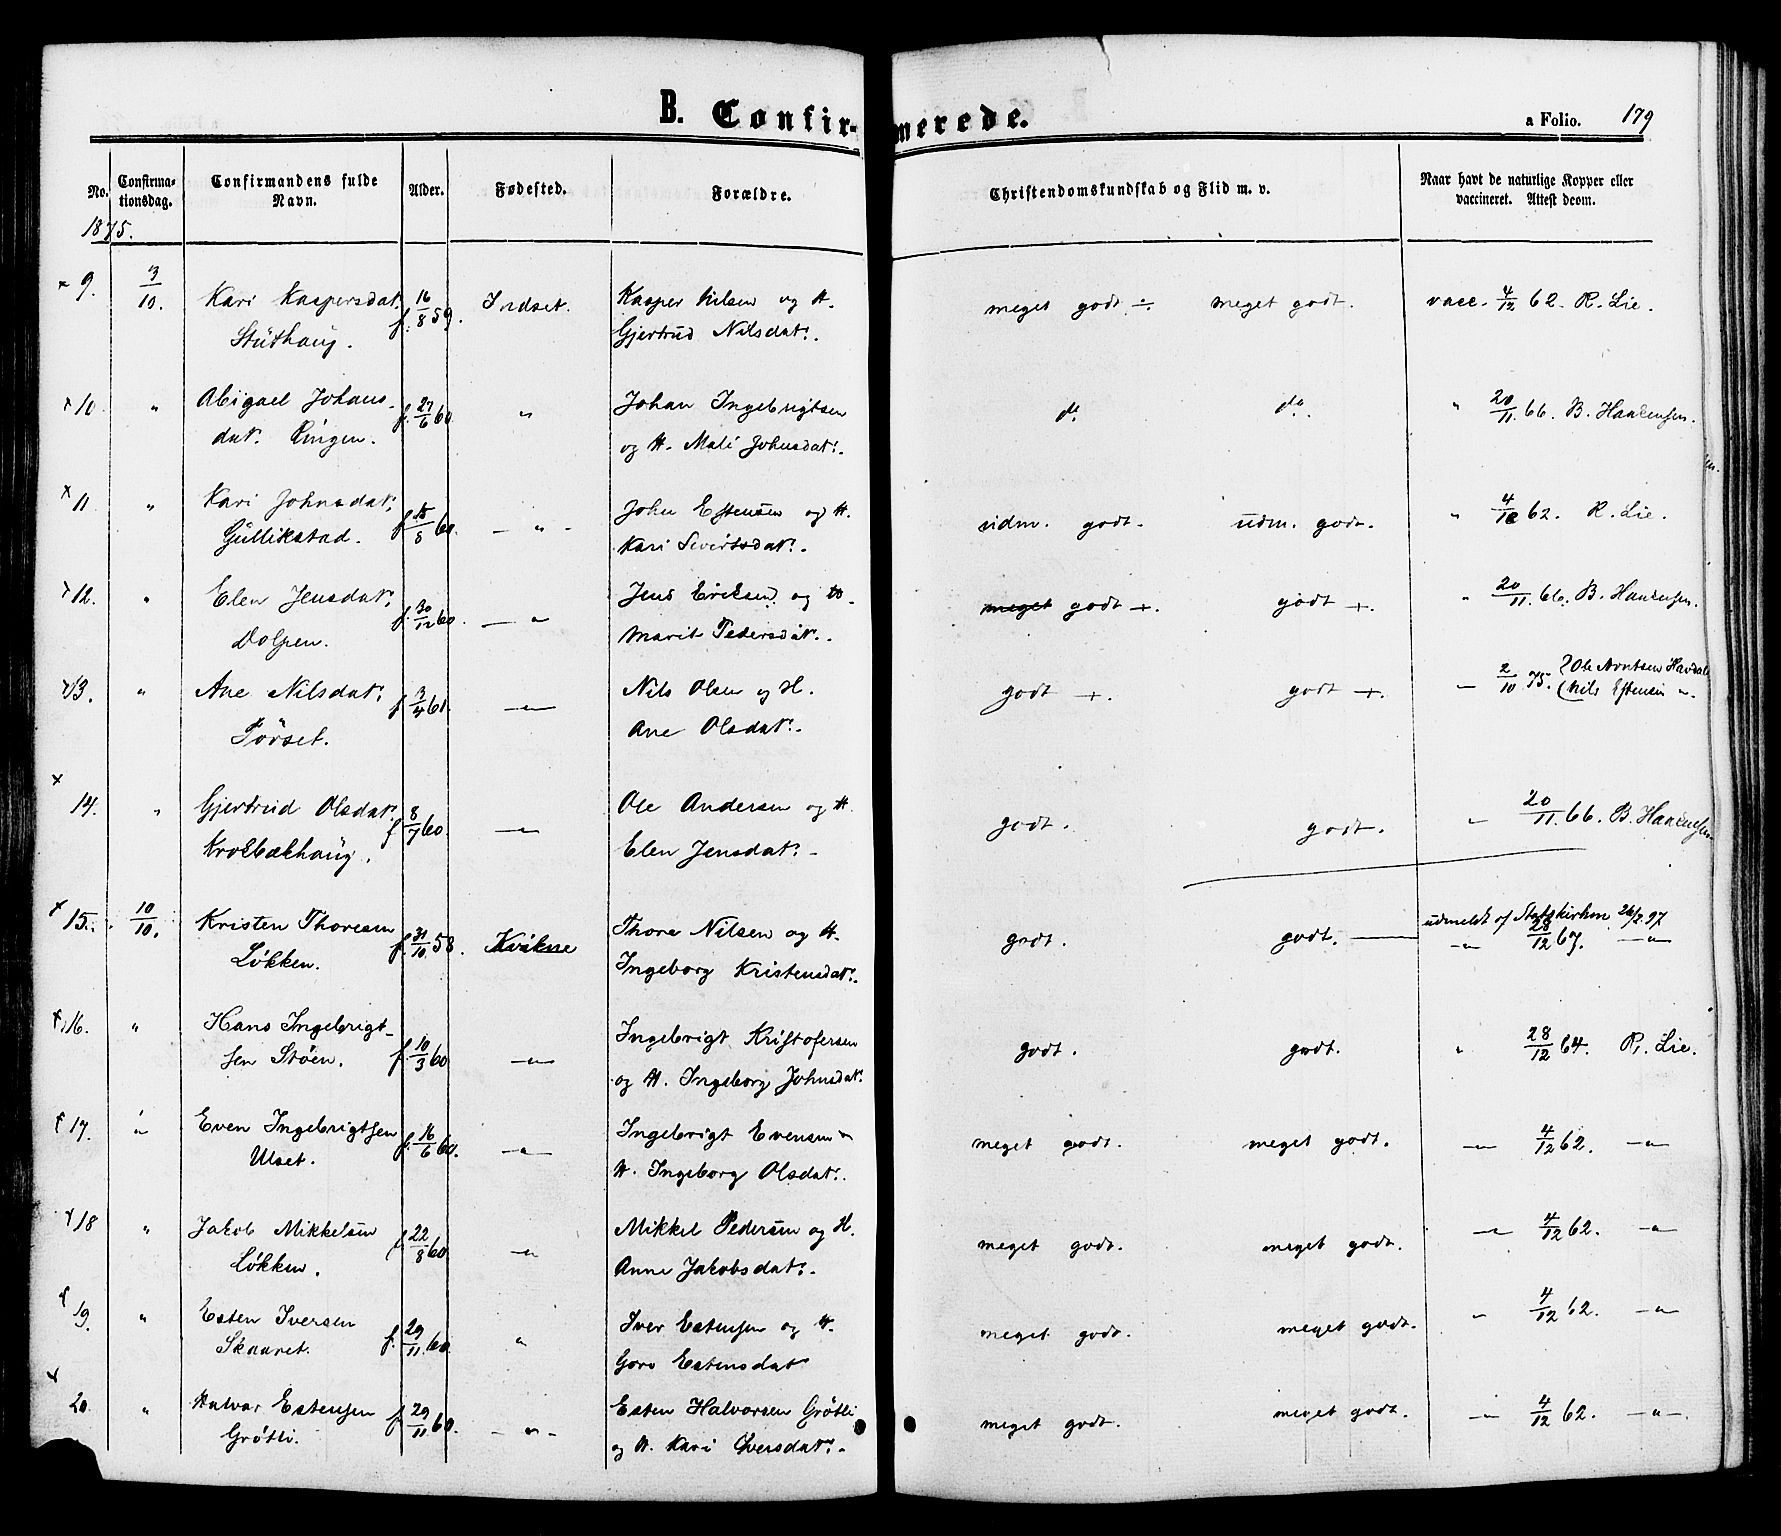 B. Confir-merede.
a Folio. 179
No. Confirmationsdag. Confirmandens fulde Navn. Alder. Fødested. Forældre. Christendomskundskab og Flid m. v. Naar havt de naturlige Kopper eller vaccineret. Attest derom.
1875.
9. 3/10. Kari Kaspersdat. f. 16/8 59. Indset. Kasper Nilsen og H. meget godt ÷ meget godt. vacc. 4/12 62. R. Lie.
Stuthaug. Gjertrud Nilsdat.
10. " Abigael Johans- f. 27/6 60. " Johan Ingebrigtsen do do. " 20/11. 66. B. Haakensen.
dat. Ringen. og H. Mali Johnsdat.
11. " Kari Johnsdat. f. 15/5 60. — " - John Estensen og H. udm. godt. udm. godt. " 4/12 62. R. Lie.
Gullikstad. Kari Sivertsdat.
12. " Elen Jensdat. f. 30/12 60. — " Jens Eriksen og H. meget godt +. godt +. " 20/11. 66. B. Haakensen.
Dolpen. Marit Pedersdat.
13. " Ane Nilsdat. f. 3/4 61. — " — Nils Olsen og H. godt +. godt +. — 2/10 75. Ole Arntsen Havdal
Nils Estensen ".
Torset. Ane Olsdat.
14. " Gjertrud Olsdat. f. 8/7 60. — " — Ole Andersen og H. godt. godt. " 20/11. 66. B. Haakensen
Krokbækhaug. Elen Jensdat.
udmeldt af Statskirken 26/2 97
15. 10/10. Kristen Thoresen f. 31/10 58. Kvikne Thore Nilsen og H. godt. godt. — " — 28/12 67. — " —
Løkken. Ingeborg Kristensdat.
16. " Hans Ingebrigt- f. 10/3 60 — " — Ingebrigt Kristofersen godt. godt. " 28/12 64. R. Lie.
sen Stöen. og H. Ingeborg Johnsdat.
17. " Even Ingebrigtsen f. 16/6 60. — " — Ingebrigt Evensen meget godt. meget godt. — " — 4/12 62. — " —
Ulset. H. Ingeborg Olsdat.
18 " Jakob Mikkelsen f. 22/8 60 — " Mikkel Pedersen og H. meget godt. meget godt. — " 4/12 62. — " —
Løkken. Anne Jakobsdat.
19. " Esten Iversen f. 29/11. 60. " Iver Estensen og H. meget godt. meget godt. — " 4/12 62. — " —
Skaaret. Goro Estensdat
20. " Halvor Estensen f. 29/11 60. — " - Esten Halvorsen Gröttli meget godt. meget godt. — " — 4/12 62. — " —.
Gröttli. og H. Kari Iversdat.